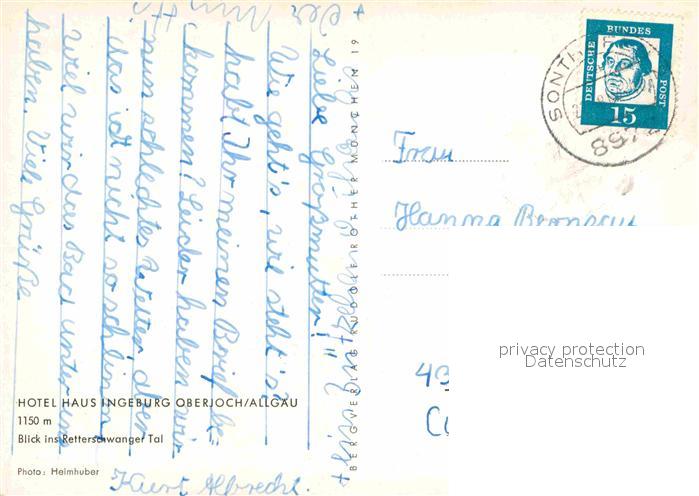 Liebe Großmutter!
Wie geht's, wie steht's
habt Ihr meinen Brief be=
kommen? Leider haben wir
nun schlechtes Wetter aber
das ist nicht so schlimm
weil wir das Bad unter uns
haben. Viele Grüße
Kurt Albrecht.
HOTEL HAUS INGEBURG OBERJOCH/ALLGÄU
1150 m
Blick ins Retterschwanger Tal
Photo: Heimhuber
BERGVERLAG RUDOLF ROTHER MÜNCHEN 19
DEUTSCHE BUNDES POST
15
SONTH
8972
Frau
Hanna
43
privacy protection
Datenschutz